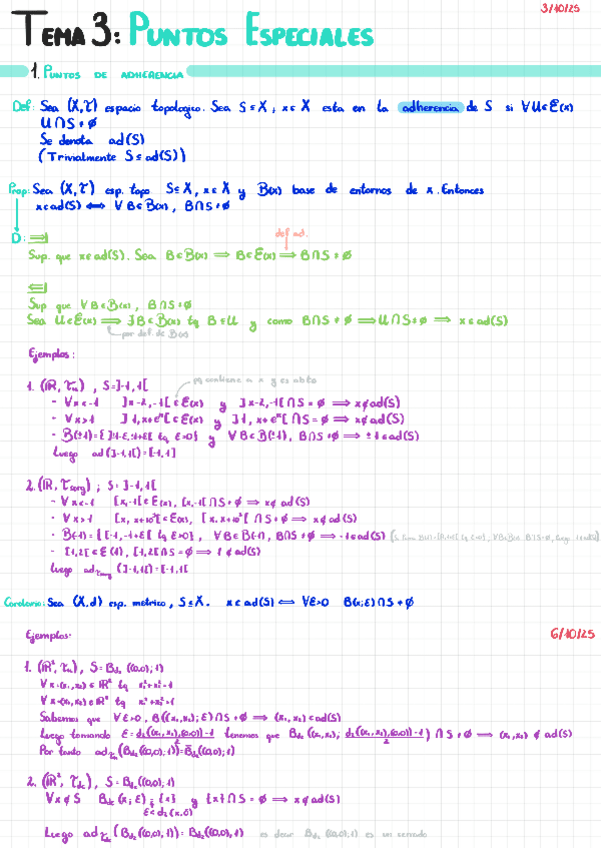 3/10/25
TEMA 3: PUNTOS ESPECIALES
1. PUNTOS DE ADHERENCIA
Def: Sea (X,τ) espacio topologico. Sea S⊆X, x∈X esta en la adherencia de S si ∀U∈E(x)
U∩S≠∅
Se denota ad(S)
(Trivialmente S⊆ad(S))
Prop: Sea (X,τ) esp. topo S⊆X, x∈X y B(x) base de entornos de x. Entonces
x∈ad(S) ⟺ ∀B∈B(x), B∩S≠∅
def ad.
D: ⟹|
Sup. que x∈ad(S). Sea B∈B(x) ⟹ B∈E(x) ⟹ B∩S≠∅
⟸|
Sup que ∀B∈B(x), B∩S≠∅
Sea U∈E(x) ⟹ ∃B∈B(x) tq B⊆U y como B∩S≠∅ ⟹ U∩S≠∅ ⟹ x∈ad(S)
por def. de B(x)
Ejemplos:
contiene a x y es abto
1. (ℝ, τu), S=]-1,1[
- ∀x<-1 ]x-2,-1[∈E(x) y ]x-2,-1[∩S=∅ ⟹ x∉ad(S)
- ∀x>1 ]1,x+e^π[∈E(x) y ]1,x+e^π[∩S=∅ ⟹ x∉ad(S)
- B(±1)={]±1-ε,±1+ε[ tq ε>0} y ∀B∈B(±1), B∩S≠∅ ⟹ ±1∈ad(S)
Luego ad(]-1,1[)=[-1,1]
2. (ℝ, τsorg), S=]-1,1[
- ∀x<-1 [x,-1[∈E(x), [x,-1[∩S=∅ ⟹ x∉ad(S)
- ∀x>1 [x,x+10⁵[∈E(x), [x,x+10⁵[∩S=∅ ⟹ x∉ad(S)
- B(-1)={[-1,-1+ε[ tq ε>0}, ∀B∈B(-1), B∩S≠∅ ⟹ -1∈ad(S)
- [1,2[∈E(1), [1,2[∩S=∅ ⟹ 1∉ad(S)
Luego ad τsorg (]-1,1[)=[-1,1[
Corolario: Sea (X,d) esp. metrico, S⊆X. x∈ad(S) ⟺ ∀ε>0 B(x;ε)∩S≠∅
Ejemplos:
6/10/25
1. (ℝ², τu), S=B_d₂((0,0);1)
∀x=(x₁,x₂)∈ℝ² tq x₁²+x₂²=1
∀x=(x₁,x₂)∈ℝ² tq x₁²+x₂²>1
Sabemos que ∀ε>0, B((x₁,x₂);ε)∩S≠∅ ⟹ (x₁,x₂)∈ad(S)
Luego tomando ε=(d₂((x₁,x₂),(0,0))-1)/2 tenemos que B_d₂((x₁,x₂); (d₂((x₁,x₂),(0,0))-1)/2)∩S=∅ ⟹ (x₁,x₂)∉ad(S)
Por tanto ad τu (B_d₂((0,0);1))=B̄_d₂((0,0);1)
2. (ℝ², τdc), S=B_d₂((0,0);1)
∀x∉S B_dc(x;ε)={x} y {x}∩S=∅ ⟹ x∉ad(S)
ε<d₂(x,0)
Luego ad τdc (B_d₂((0,0),1))=B_d₂((0,0),1) es decir B_d₂((0,0),1) es un cerrado